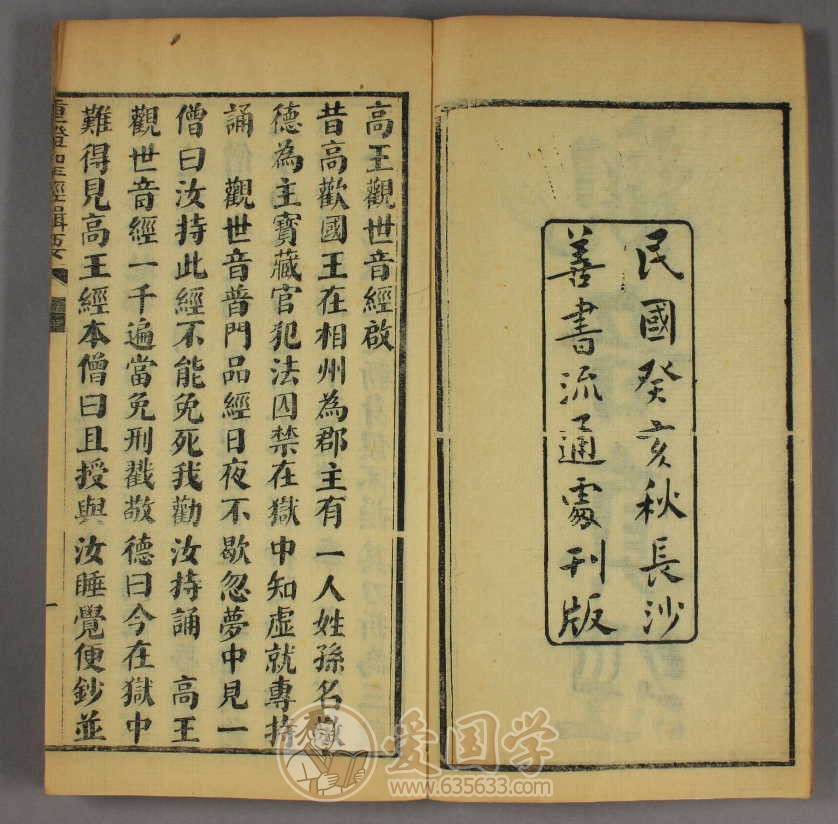 民國癸亥秋長沙
善書流通處刊版
高王觀世音經啟
昔高歡國王在相州為郡主有一人姓孫名敬
德為主寶藏官犯法囚禁在獄中知虛就專持
誦 觀世音普門品經日夜不歇忽夢中見一
僧曰汝持此經不能免死我勸汝持誦 高王
觀世音經一千遍當免刑戮敬德曰今在獄中
難得見高王經本僧曰且授與汝睡覺便鈔並
經輯要
一
爱国学
www.635633.com